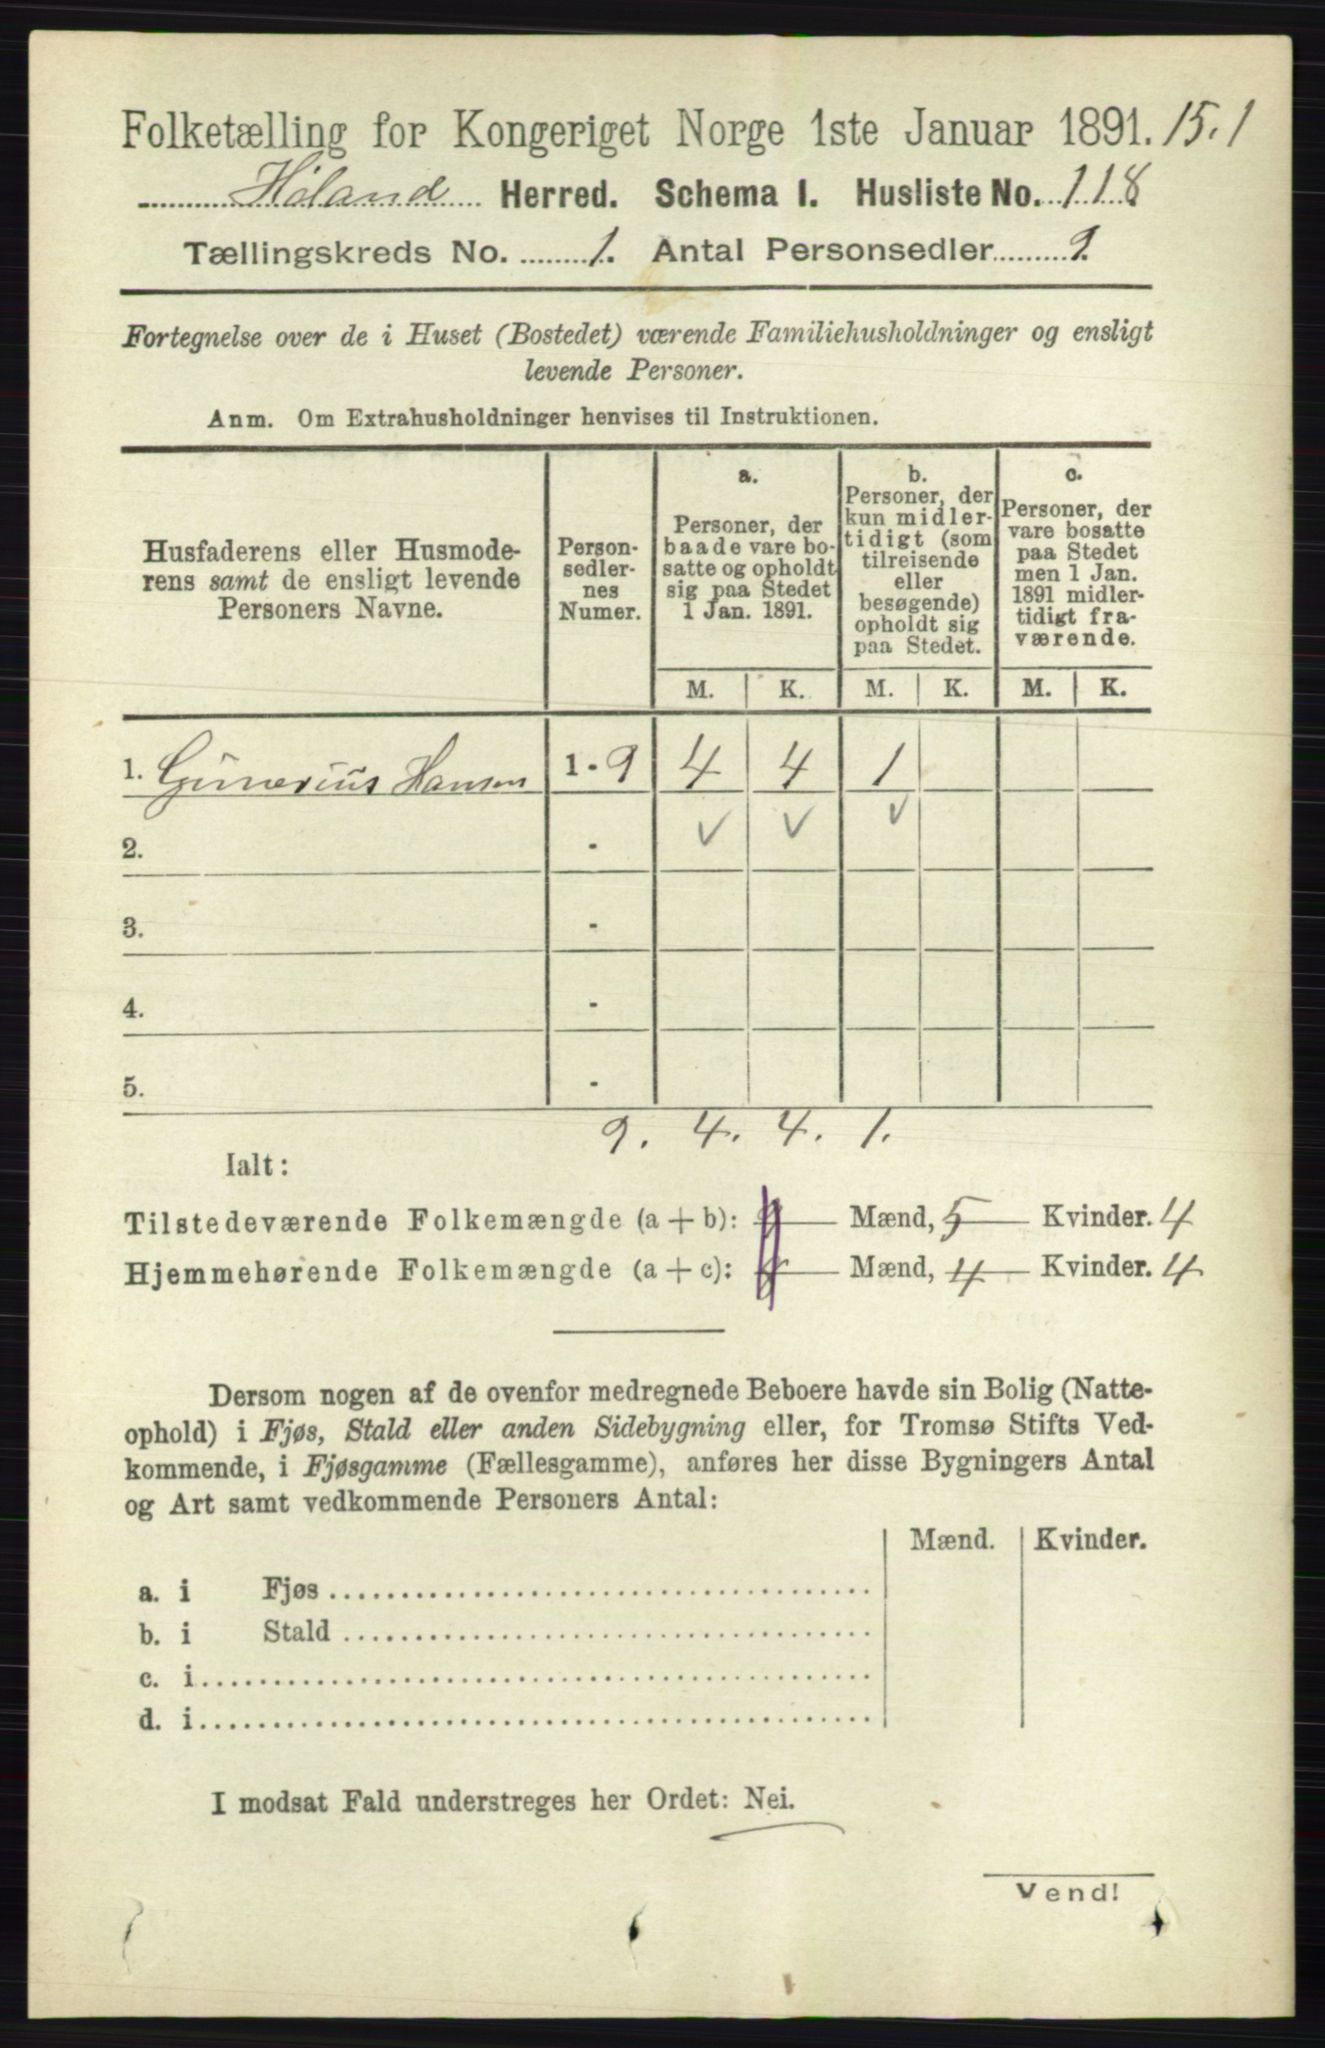 Folketælling for Kongeriget Norge 1ste Januar 1891. 15.1
Høland Herred. Schema I. Husliste No. 118
Tællingskreds No. 1. Antal Personsedler 9.
Fortegnelse over de i Huset (Bostedet) værende Familiehusholdninger og ensligt
levende Personer.
Anm. Om Extrahusholdninger henvises til Instruktionen.
Husfaderens eller Husmode-
rens samt de ensligt levende
Personers Navne.
Person-
sedler-
nes
Numer.
a.
Personer, der
baade vare bo-
satte og opholdt
sig paa Stedet
1 Jan. 1891.
b.
Personer, der
kun midler-
tidigt (som
tilreisende
eller
besøgende)
opholdt sig
paa Stedet.
c.
Personer, der
vare bosatte
paa Stedet
men 1 Jan.
1891 midler-
tidigt fra-
værende.
M. K. M. K. M. K.
1. Gunerius Hansen 1 - 9 4 4 1
2. - ✓ ✓ ✓
3. -
4. -
5. -
9. 4. 4. 1.
Ialt:
Tilstedeværende Folkemængde (a + b): Mænd, 5 Kvinder. 4
Hjemmehørende Folkemængde (a + c): Mænd, 4 Kvinder. 4
Dersom nogen af de ovenfor medregnede Beboere havde sin Bolig (Natte-
ophold) i Fjøs, Stald eller anden Sidebygning eller, for Tromsø Stifts Ved-
kommende, i Fjøsgamme (Fællesgamme), anføres her disse Bygningers Antal
og Art samt vedkommende Personers Antal:
Mænd. Kvinder.
a. i Fjøs
b. i Stald
c. i
d. i
I modsat Fald understreges her Ordet: Nei.
Vend!